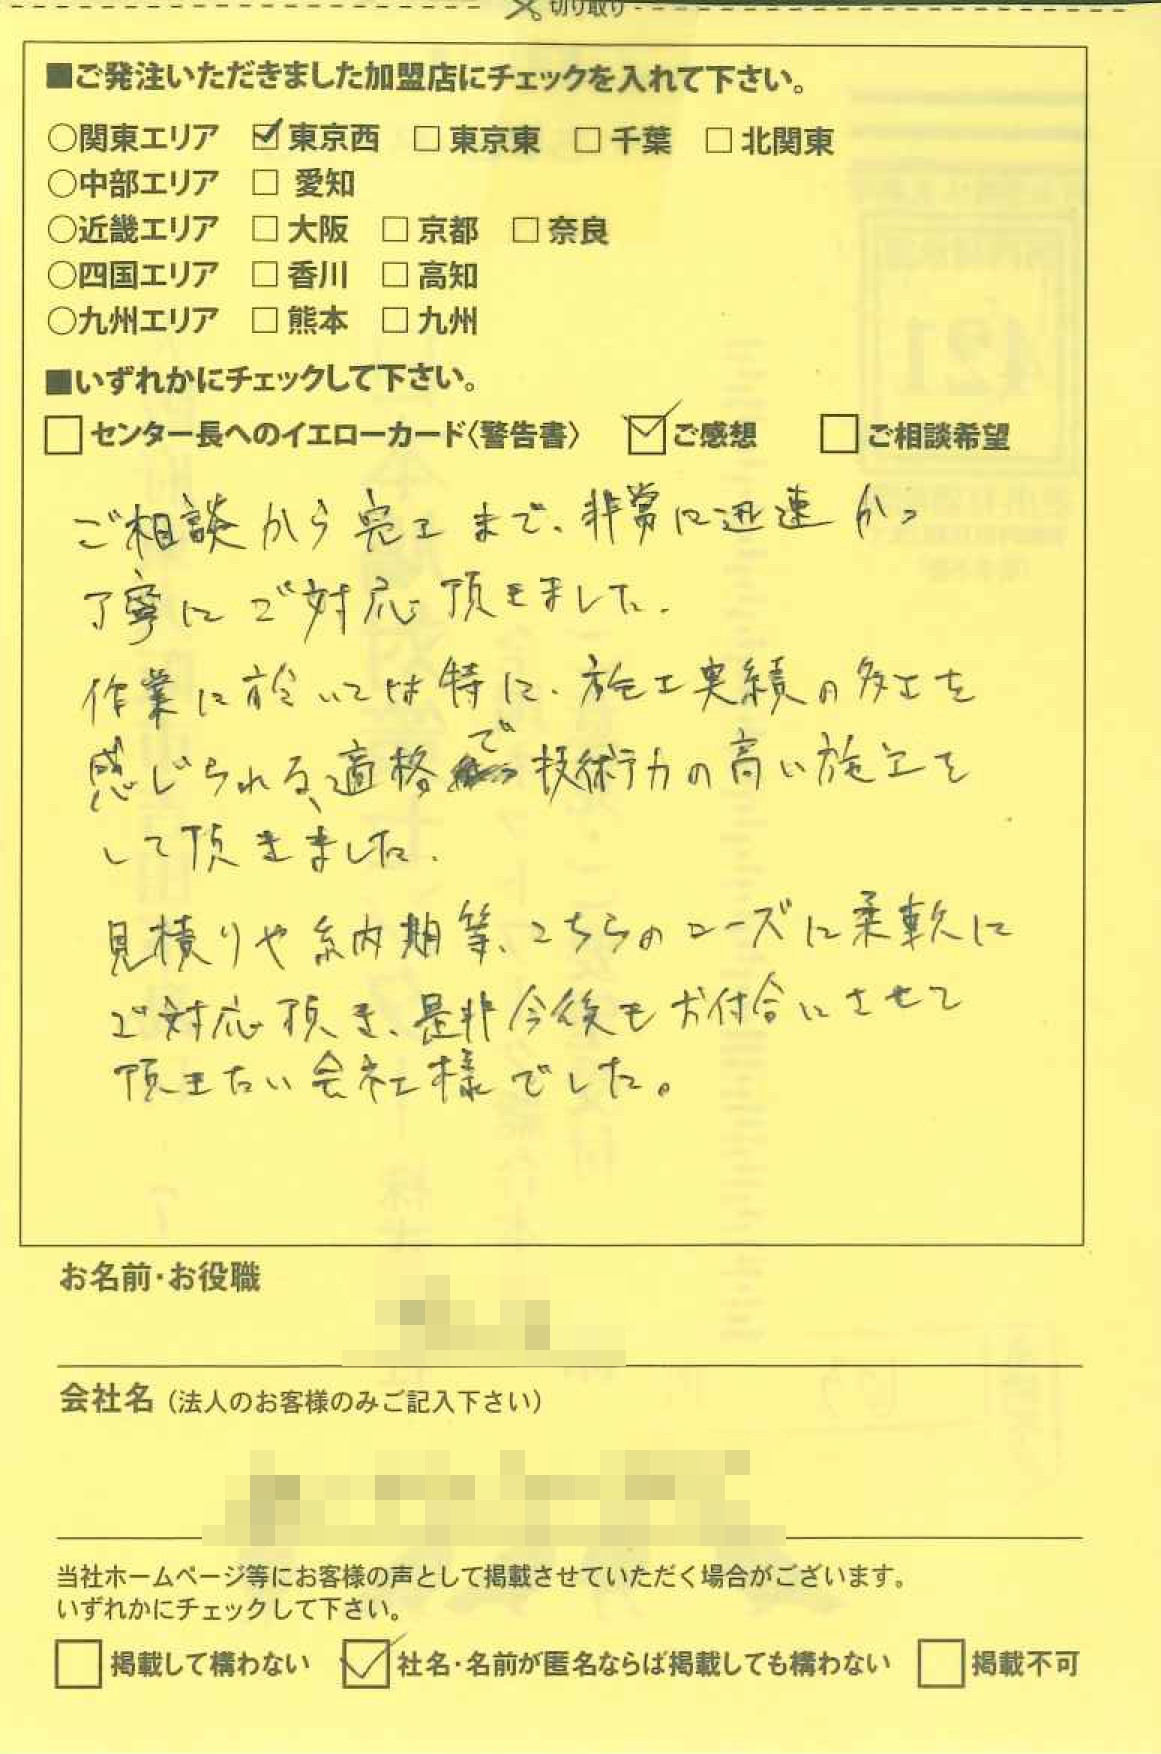 切り取り
■ご発注いただきました加盟店にチェックを入れて下さい。
○関東エリア ☑東京西 □東京東 □千葉 □北関東
○中部エリア □愛知
○近畿エリア □大阪 □京都 □奈良
○四国エリア □香川 □高知
○九州エリア □熊本 □九州
■いずれかにチェックして下さい。
□センター長へのイエローカード〈警告書〉 ☑ご感想 □ご相談希望
ご相談から完工まで、非常に迅速かつ
丁寧にご対応頂きました。
作業に於いては特に、施工実績の多さを
感じられる、適格で技術力の高い施工を
して頂きました。
見積りや納期等、こちらのニーズに柔軟に
ご対応頂き、是非今後もお付合いさせて
頂きたい会社様でした。
お名前・お役職
会社名（法人のお客様のみご記入下さい）
当社ホームページ等にお客様の声として掲載させていただく場合がございます。
いずれかにチェックして下さい。
□掲載して構わない ☑社名・名前が匿名ならば掲載しても構わない □掲載不可